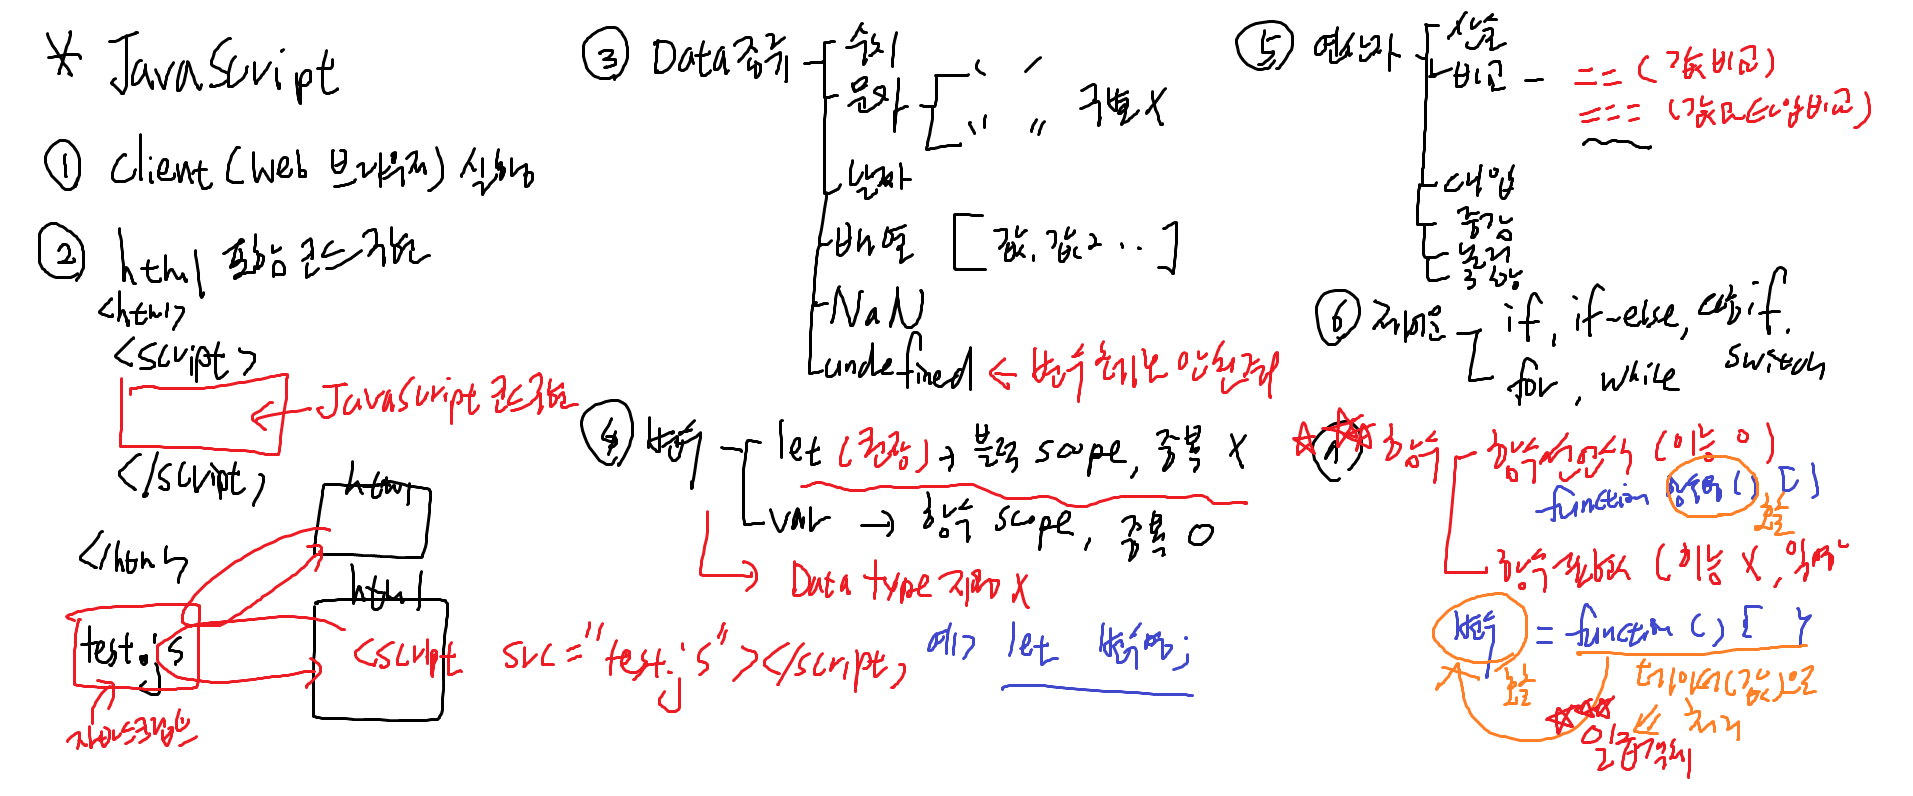 * JavaScript
① client (Web 브라우저) 실행
② html 포함 코드 구현
<html>
<script>
JavaScript 코드 구현
</script>
</html>
html
html
test.js
자바스크립트
<script src="test.js"></script>
③ Data 종류
수치
문자 ' '
" " 구분 X
날짜
배열 [값, 값2 ..]
NaN
undefined ← 변수 초기화 안된 경우
④ 변수
let (권장) → 블럭 scope, 중복 X
var → 함수 scope, 중복 O
Data type 지정 X
예> let 변수명;
⑤ 연산자
산술
비교 - == (값 비교)
=== (값 및 타입 비교)
대입
증감
논리
3항
⑥ 제어문
if, if-else, 다중 if, switch
for, while
⑦ 함수
함수 선언식 (이름 O)
function 함수명() { }
호출
함수 표현식 (이름 X, 익명)
변수 = function () { }
호출
데이터(값)으로
처리
일급객체